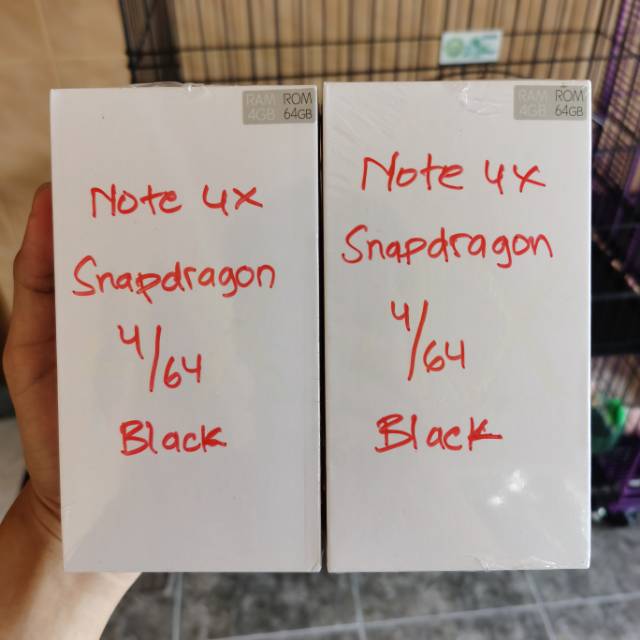 RAM ROM
4GB 64GB
Note 4x
Snapdragon
4/64
Black
RAM ROM
4GB 64GB
Note 4x
Snapdragon
4/64
Black